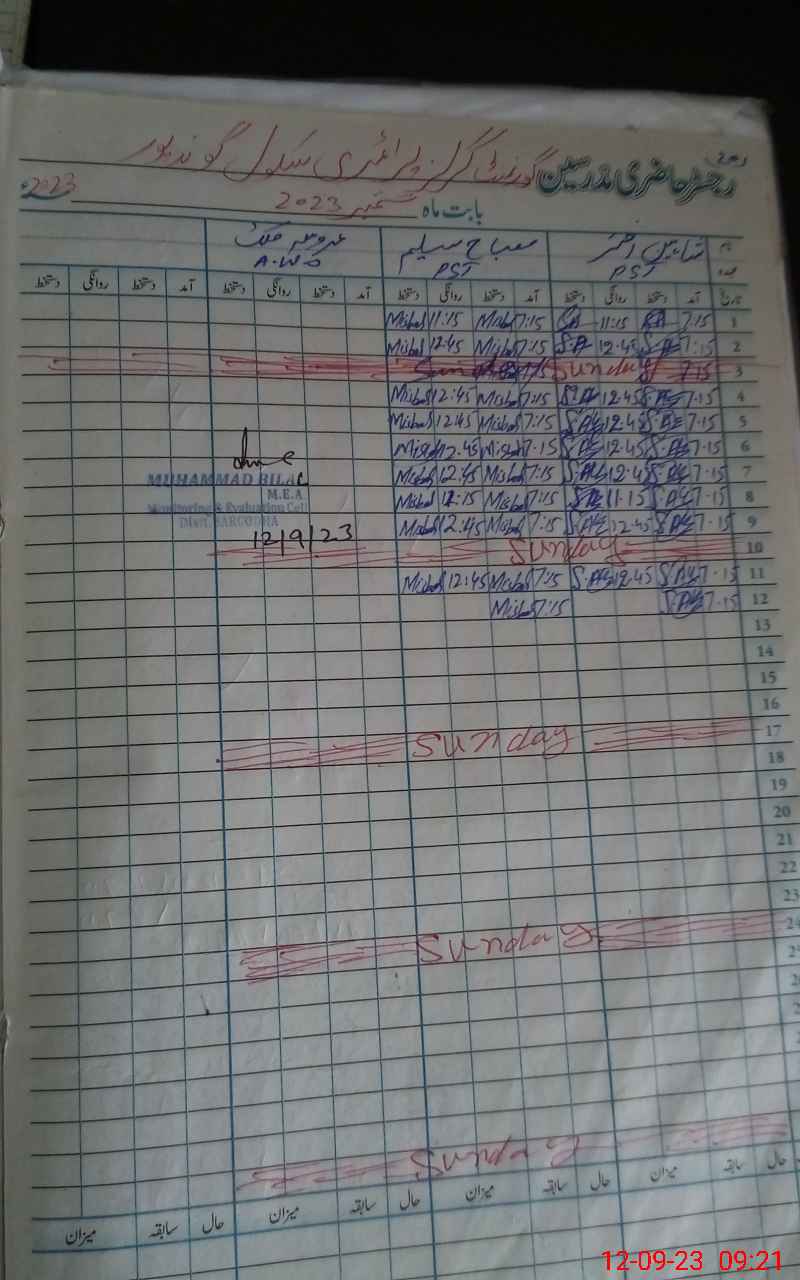 رجسٹر حاضری مدرسین گورنمنٹ گرلز پرائمری سکول گوندپور
بابت ماہ ستمبر 2023 2023ء
نام شاہین اختر مصباح سلیم عروسہ ملک
عہدہ PST PST
تاریخ آمد دستخط روانگی دستخط آمد دستخط روانگی دستخط آمد دستخط روانگی دستخط آمد دستخط روانگی دستخط
1 7:15 11:15 7:15 Misbah 11:15 Misbah
2 7:15 12:45 7:15 Misbah 12:45 Misbah
3 7:15 Sunday
4 7:15 12:45 7:15 Misbah 12:45 Misbah
5 7:15 12:45 7:15 Misbah 12:45 Misbah
6 7:15 12:45 7:15 Misbah 12:45 Misbah
7 7:15 12:45 7:15 Misbah 12:45 Misbah
8 7:15 11:15 7:15 Misbah 11:15 Misbah
9 7:15 12:45 7:15 Misbah 12:45 Misbah
10 Sunday
11 7:15 12:45 7:15 Misbah 12:45 Misbah
12 7:15 7:15 Misbah
MUHAMMAD BILAL
M.E.A
Monitoring & Evaluation Cell
Distt. SARGODHA
12/9/23
13
14
15
16
17 Sunday
18
19
20
21
22
23
24 Sunday
Sunday
حال سابقہ میزان حال سابقہ میزان حال سابقہ میزان حال سابقہ میزان
12-09-23 09:21